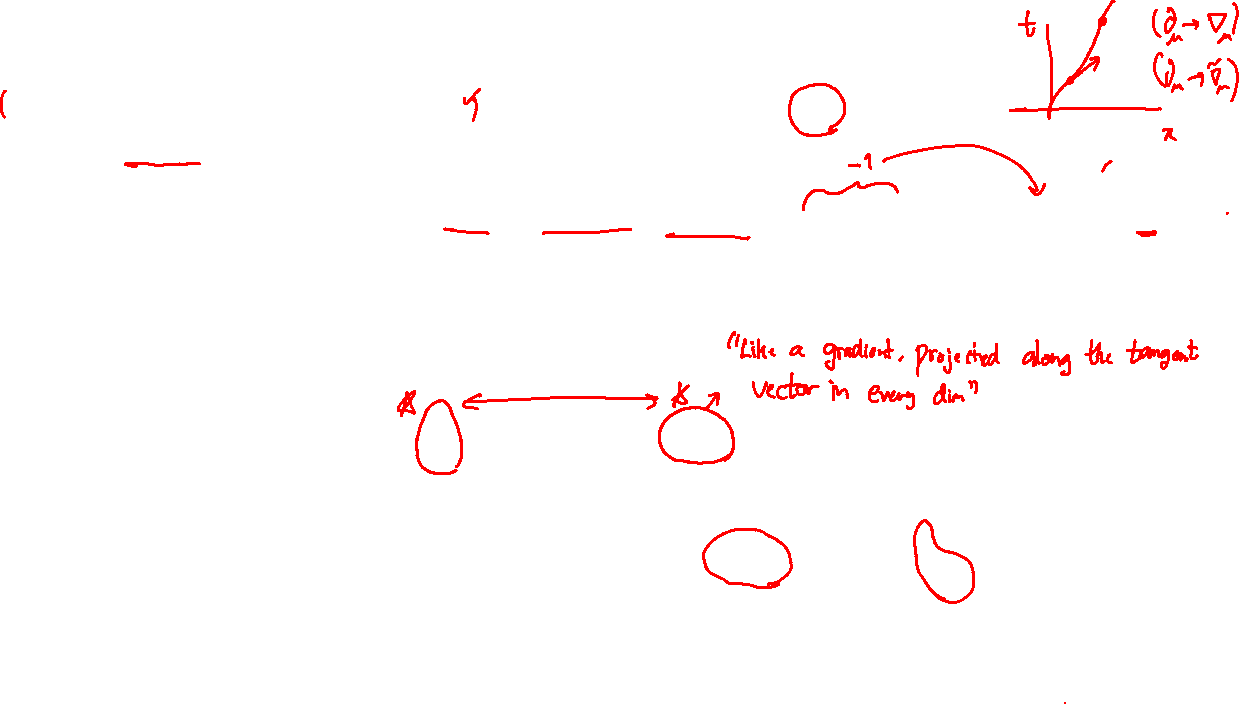 t
(∂_μ → ∇_μ)
x
-1
"Like a gradient, projected along the tangent
vector in every dim"